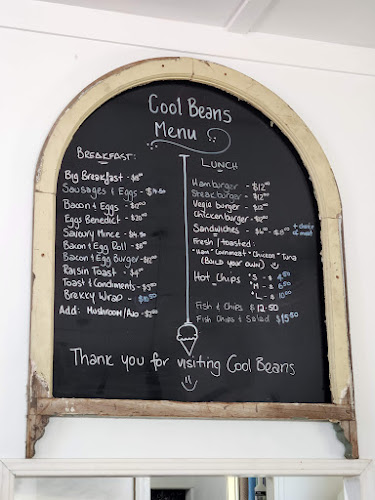 Cool Beans
Menu
BREAKFAST:
Big Breakfast -
Sausages & Eggs -
Bacon & Eggs -
Eggs Benedict - $20
Savoury Mince -
Bacon & Egg Roll - $8
Bacon & Egg Burger -
Raisin Toast -
Toast & Condiments - $5
Brekky Wrap -
Add: Mushroom/Avo -
LUNCH
Hamburger - $12
Steakburger -
Vegie burger - $12
Chickenburger -
Sandwiches -
Fresh / toasted:
"Ham" "Cornmeat" "Chicken" Tuna
(Build your own)
Hot Chips "S -
"M -
"L - 10.00
Fish & Chips $12.50
Fish Chips & Salad $15.50
Thank you for visiting Cool Beans